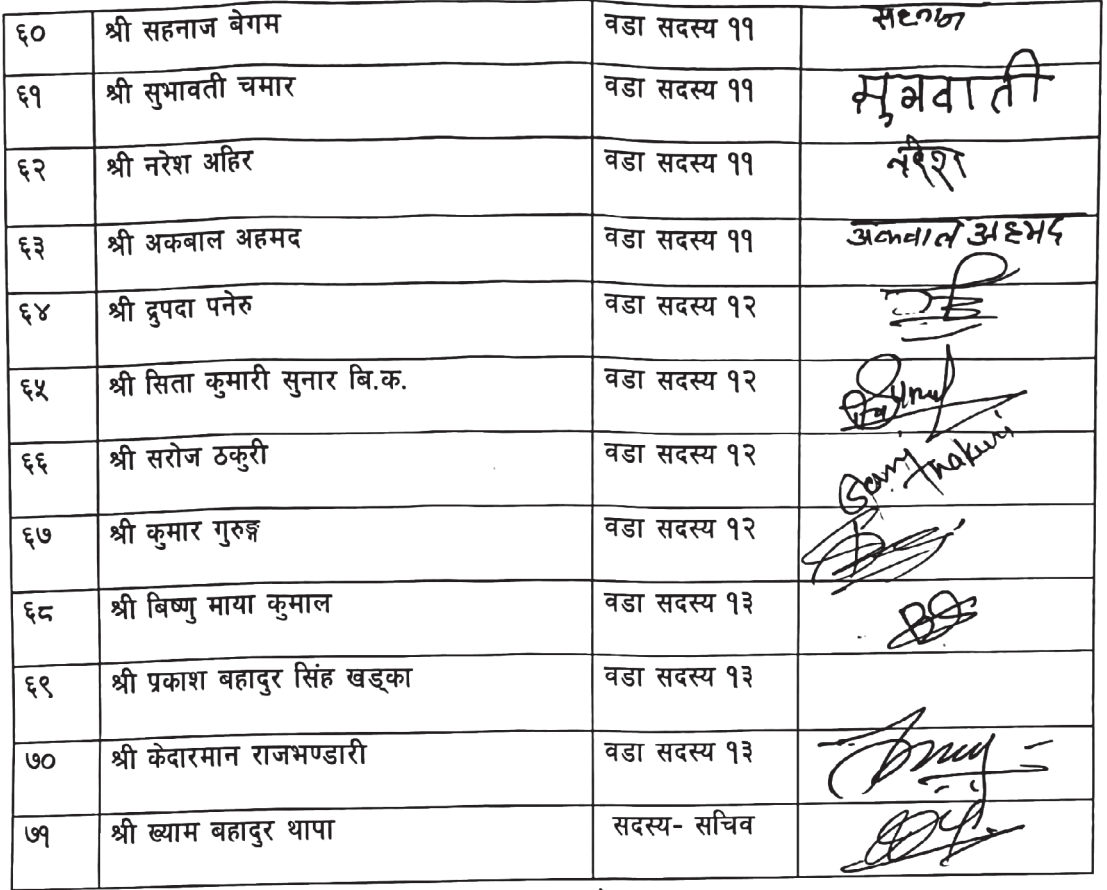 ६० श्री सहनाज बेगम वडा सदस्य ११ सहनाज
६१ श्री सुभावती चमार वडा सदस्य ११ सुभवाती
६२ श्री नरेश अहिर वडा सदस्य ११ नरेश
६३ श्री अकबाल अहमद वडा सदस्य ११ अकवाल अहमद
६४ श्री द्रुपदा पनेरु वडा सदस्य १२
६५ श्री सिता कुमारी सुनार बि.क. वडा सदस्य १२
६६ श्री सरोज ठकुरी वडा सदस्य १२ Thakuri
६७ श्री कुमार गुरुङ्ग वडा सदस्य १२
६८ श्री बिष्णु माया कुमाल वडा सदस्य १३
६९ श्री प्रकाश बहादुर सिंह खड्का वडा सदस्य १३
७० श्री केदारमान राजभण्डारी वडा सदस्य १३
७१ श्री ख्याम बहादुर थापा सदस्य- सचिव